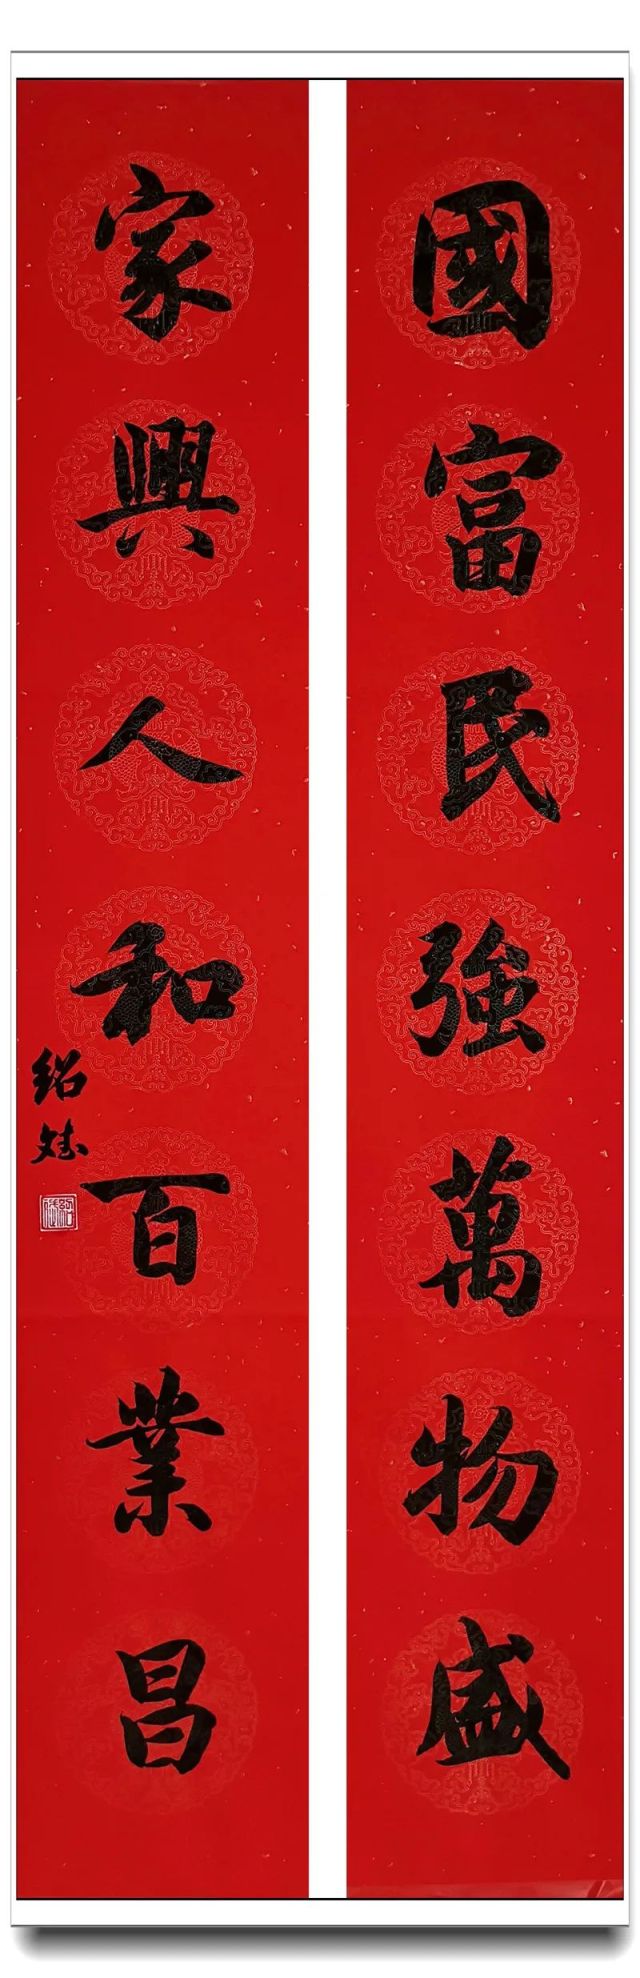 國富民強萬物盛
家興人和百業昌
紹斌